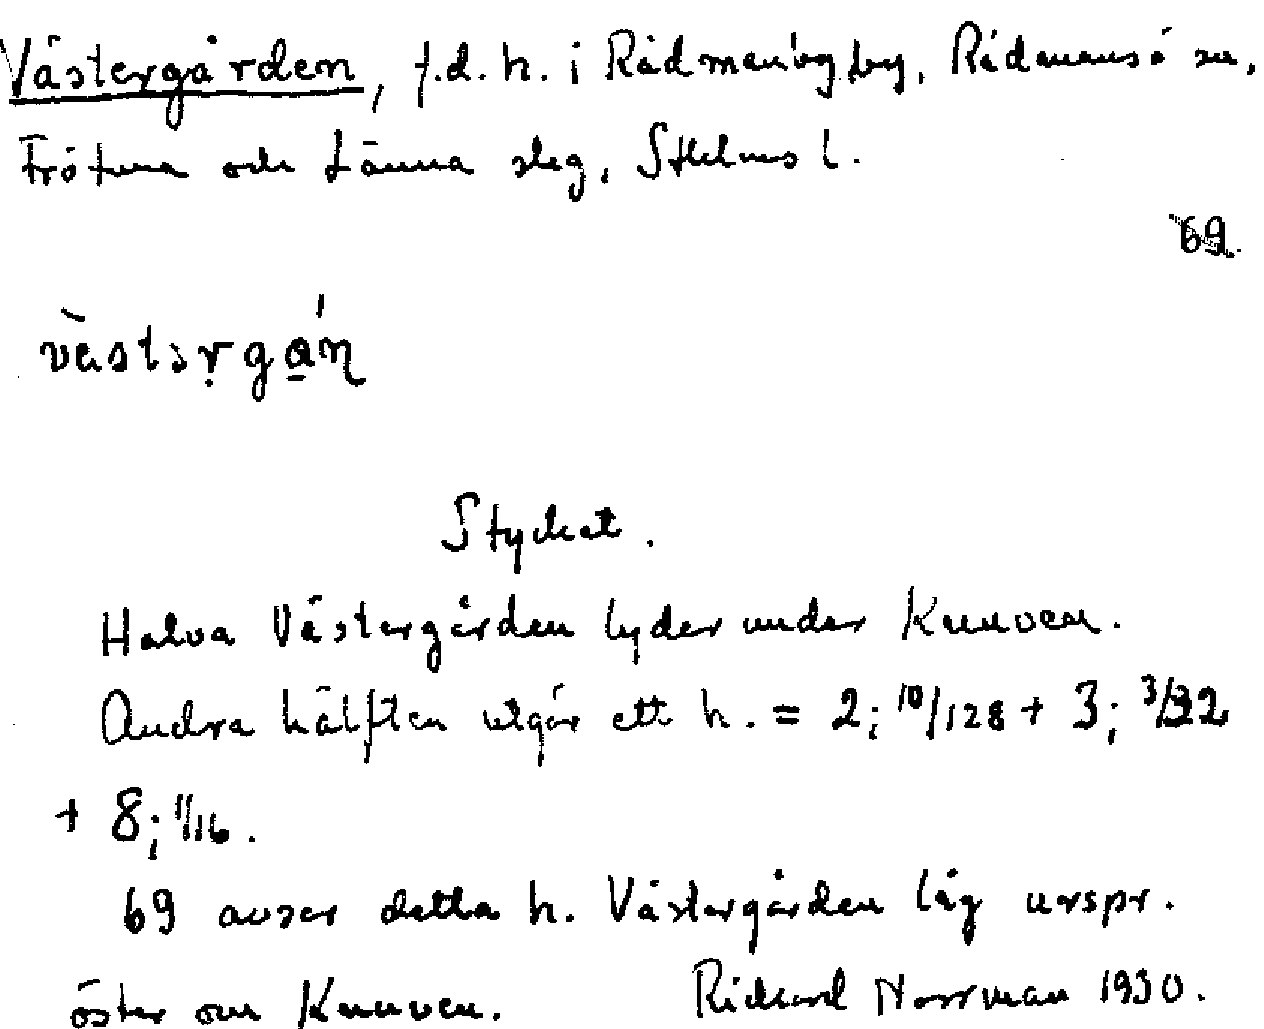 Västergården, f.d. h. i Rådmanby by, Rådmansö sn,
Frötuna och Länna slg, Sthlms l.
69.
västərgán
Styckat.
Halva Västergården lyder under Knuven.
Andra hälften utgör ett h. = 2; 10/128 + 3; 3/32
+ 8; 11/16.
69 avser detta h. Västergården låg urspr.
öster om Knuven. Rickard Norrman 1930.